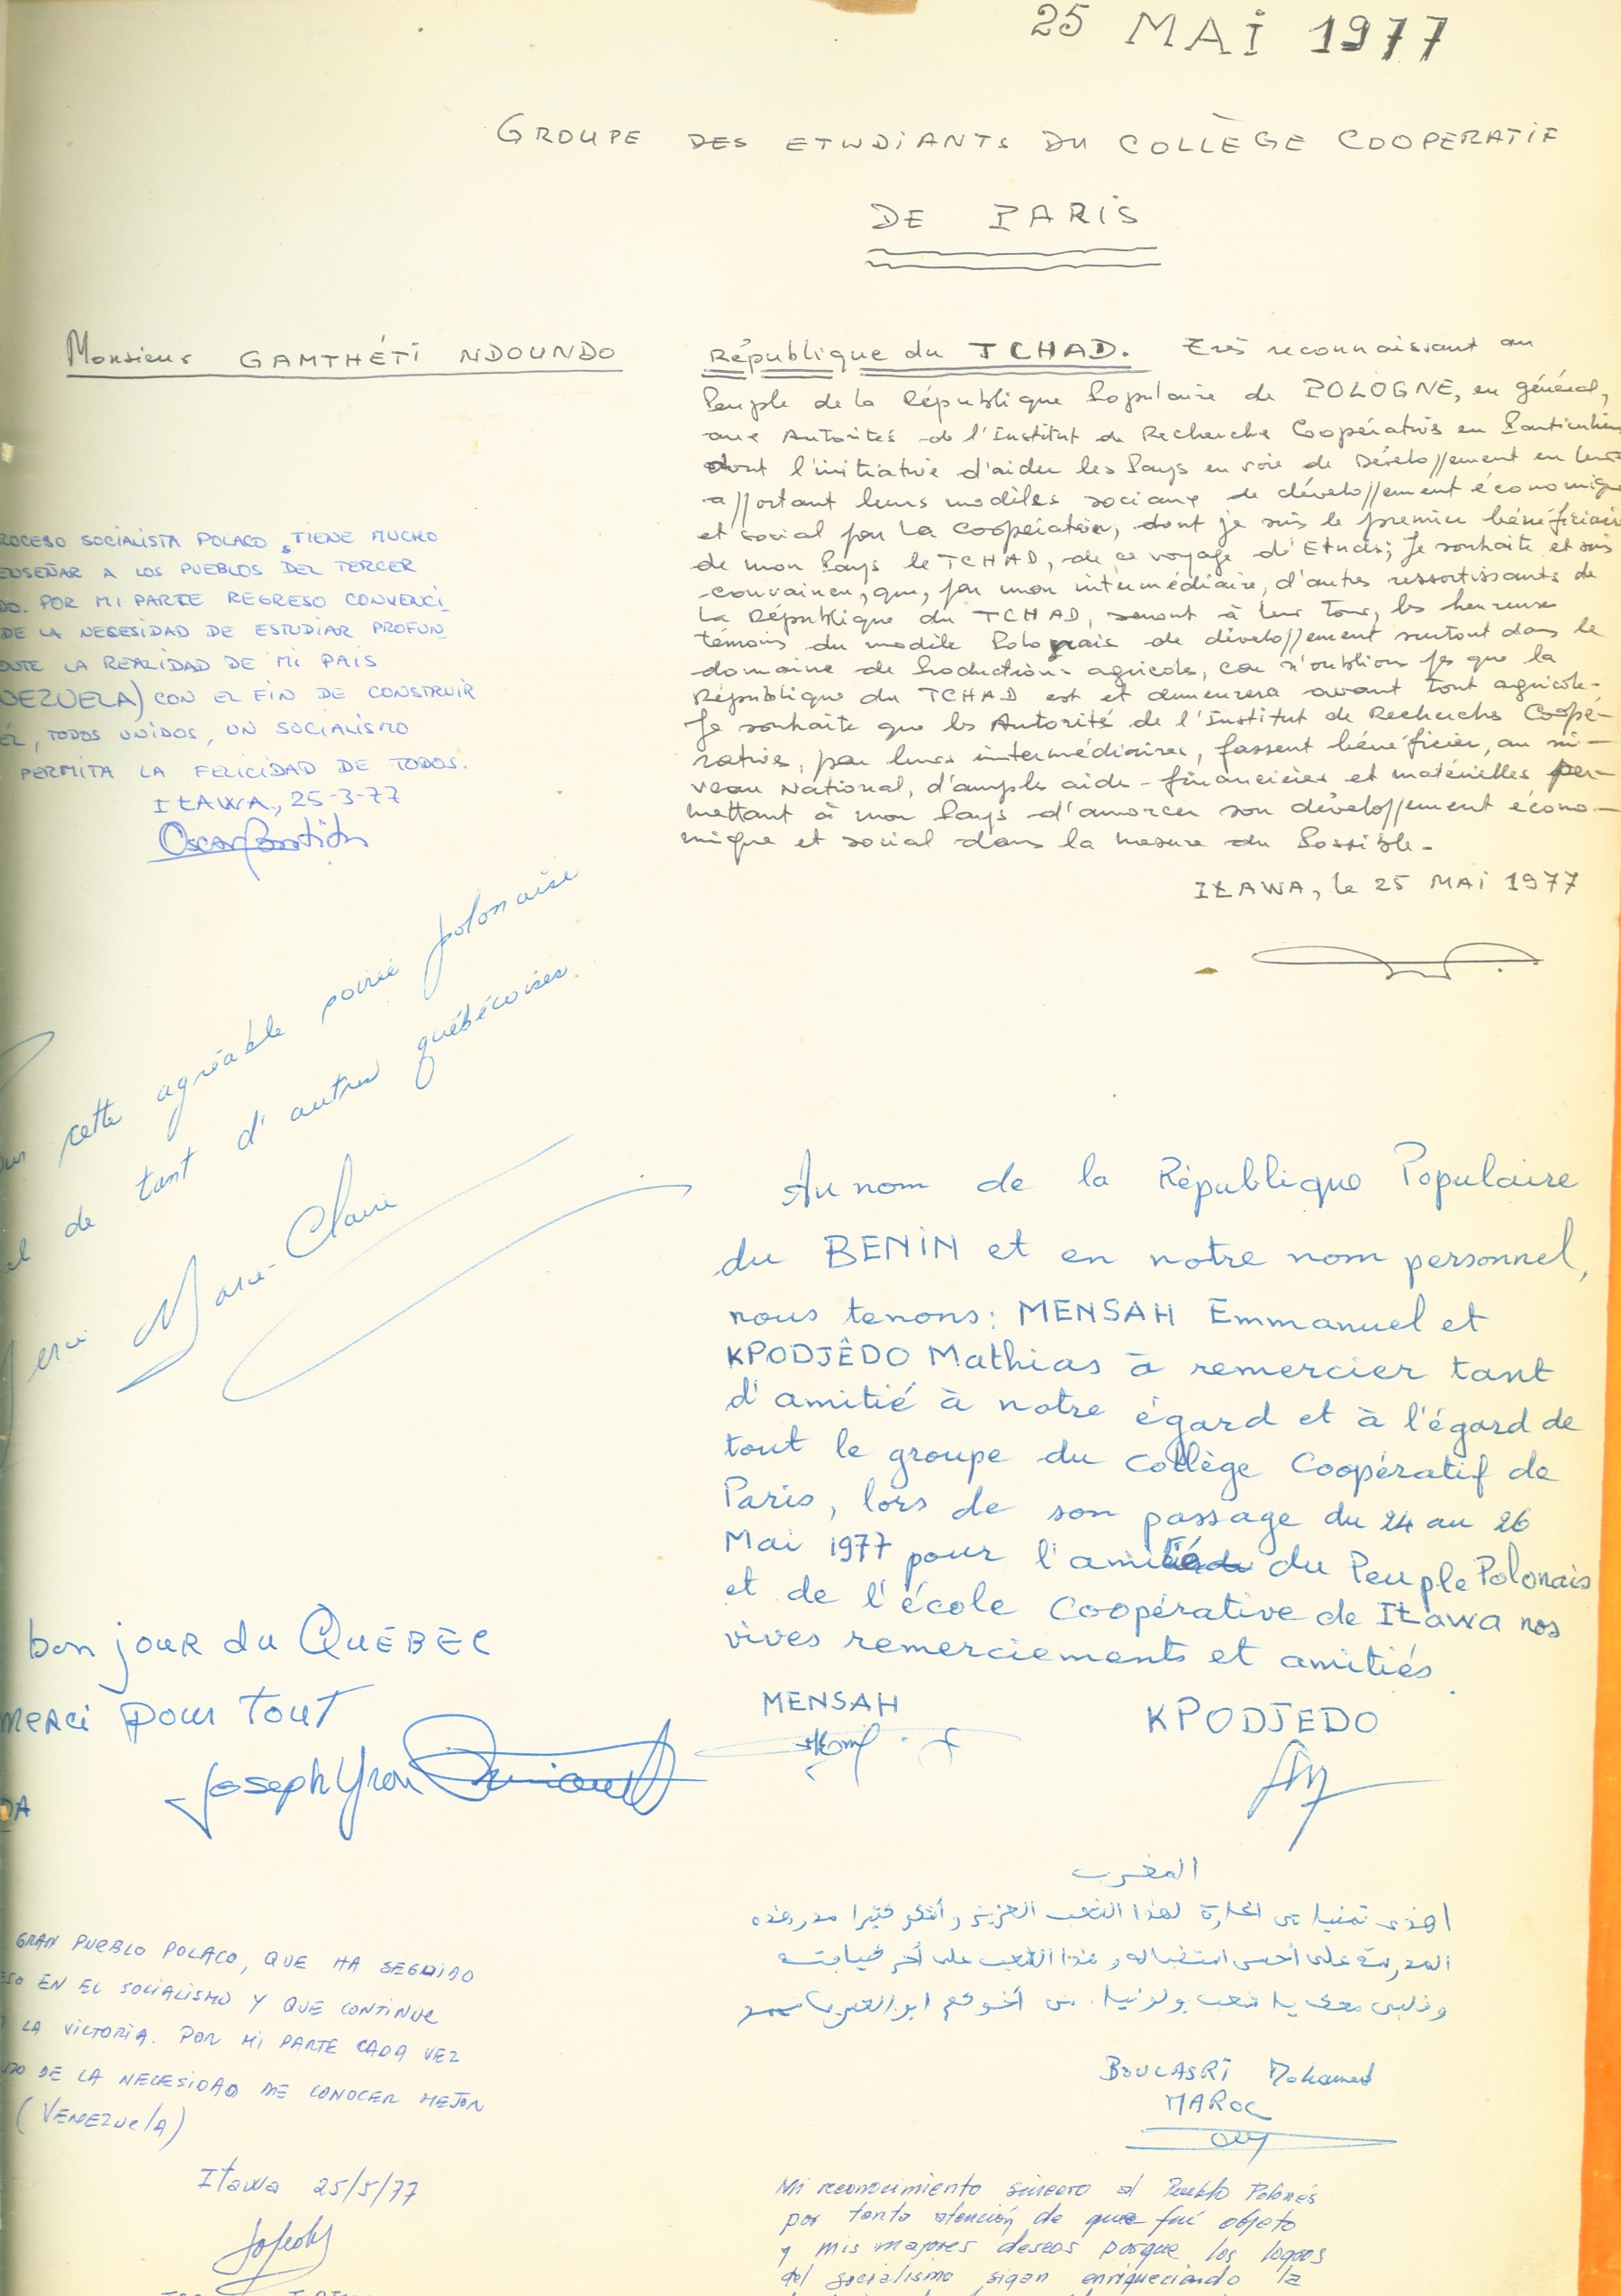 25 MAI 1977
GROUPE DES ETUDIANTS DU COLLÈGE COOPERATIF
DE PARIS
Monsieur GAMTHÉTI NDOUNDO
République du TCHAD. Très reconnaissant au
Peuple de la République Populaire de POLOGNE, en général,
aux Autorités de l'Institut de Recherche Coopératives en Particulier
dont l'initiative d'aider les Pays en voie de Développement en leur
apportant leurs modèles sociaux de développement économique
et social par la coopération, dont je suis le premier bénéficiaire
de mon Pays le TCHAD, de ce voyage d'Etudes; Je souhaite et suis
convaincu, que, par mon intermédiaire, d'autres ressortissants de
la République du TCHAD, seront à leur tour, les heureux
témoins du modèle Polonais de développement surtout dans le
domaine de Productions agricoles, car n'oublions pas que la
République du TCHAD est et demeurera avant tout agricole-
Je souhaite que les Autorité de l'Institut de Recherches Coopé-
ratives, par leurs intermédiaires, fassent bénéficier, au ni-
veau National, d'amples aide-financières et matérielles per-
mettant à mon Pays d'amorcer son développement écono-
mique et social dans la mesure du Possible-
IŁAWA, le 25 MAI 1977
PROCESO SOCIALISTA POLACO, TIENE MUCHO
ENSEÑAR A LOS PUEBLOS DEL TERCER
DO. POR MI PARTE REGRESO CONVENCI
DE LA NECESIDAD DE ESTUDIAR PROFUN
LA REALIDAD DE MI PAIS
(VENEZUELA) CON EL FIN DE CONSTRUIR
ÉL, TODOS UNIDOS, UN SOCIALISMO
PERMITA LA FELICIDAD DE TODOS.
IŁAWA, 25-3-77
Oscar
cette agréable soirée polonaise
et de tant d'autres québécoises.
Merci Marie-Claire
Au nom de la République Populaire
du BENIN et en notre nom personnel,
nous tenons: MENSAH Emmanuel et
KPODJÊDO Mathias à remercier tant
d'amitié à notre égard et à l'égard de
tout le groupe du Collège Coopératif de
Paris, lors de son passage du 24 au 26
Mai 1977 pour l'amitié du Peuple Polonais
et de l'école Coopérative de Iława nos
vives remerciements et amitiés
MENSAH
KPODJEDO
bonjour du QUÉBEC
merci pour tout
Joseph Yvon
DA
المغرب
اهدي تمنياتي الحارة لهذا الشعب العزيز وأشكر كثيرا هذه
المدرسة على أحسن استقباله وهذا الشعب على
وقلبي معك يا شعب بولونيا. من أخوكم
BOULASRI Mohamed
MAROC
GRAN PUEBLO POLACO, QUE HA SEGUIDO
ESO EN EL SOCIALISMO Y QUE CONTINUE
LA VICTORIA. POR MI PARTE CADA VEZ
DO DE LA NECESIDAD DE CONOCER MEJOR
(VENEZUELA)
Iława 25/5/77
Mi reconocimiento sincero al Pueblo Polonés
por tanta atención de que fui objeto
y mis mejores deseos porque los logros
del socialismo sigan enriqueciendo la